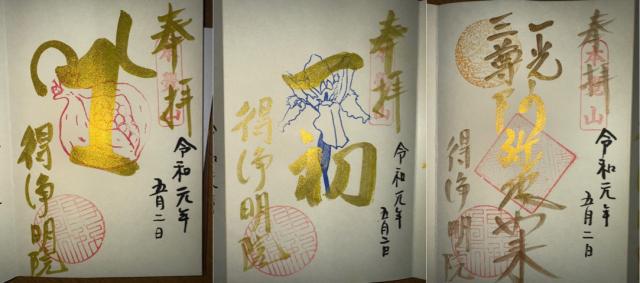 奉拝
令和元年
五月二日
得浄明院
奉拝
令和元年
五月二日
一初
得浄明院
奉拝
令和元年
五月二日
一光
三尊
如来
得浄明院